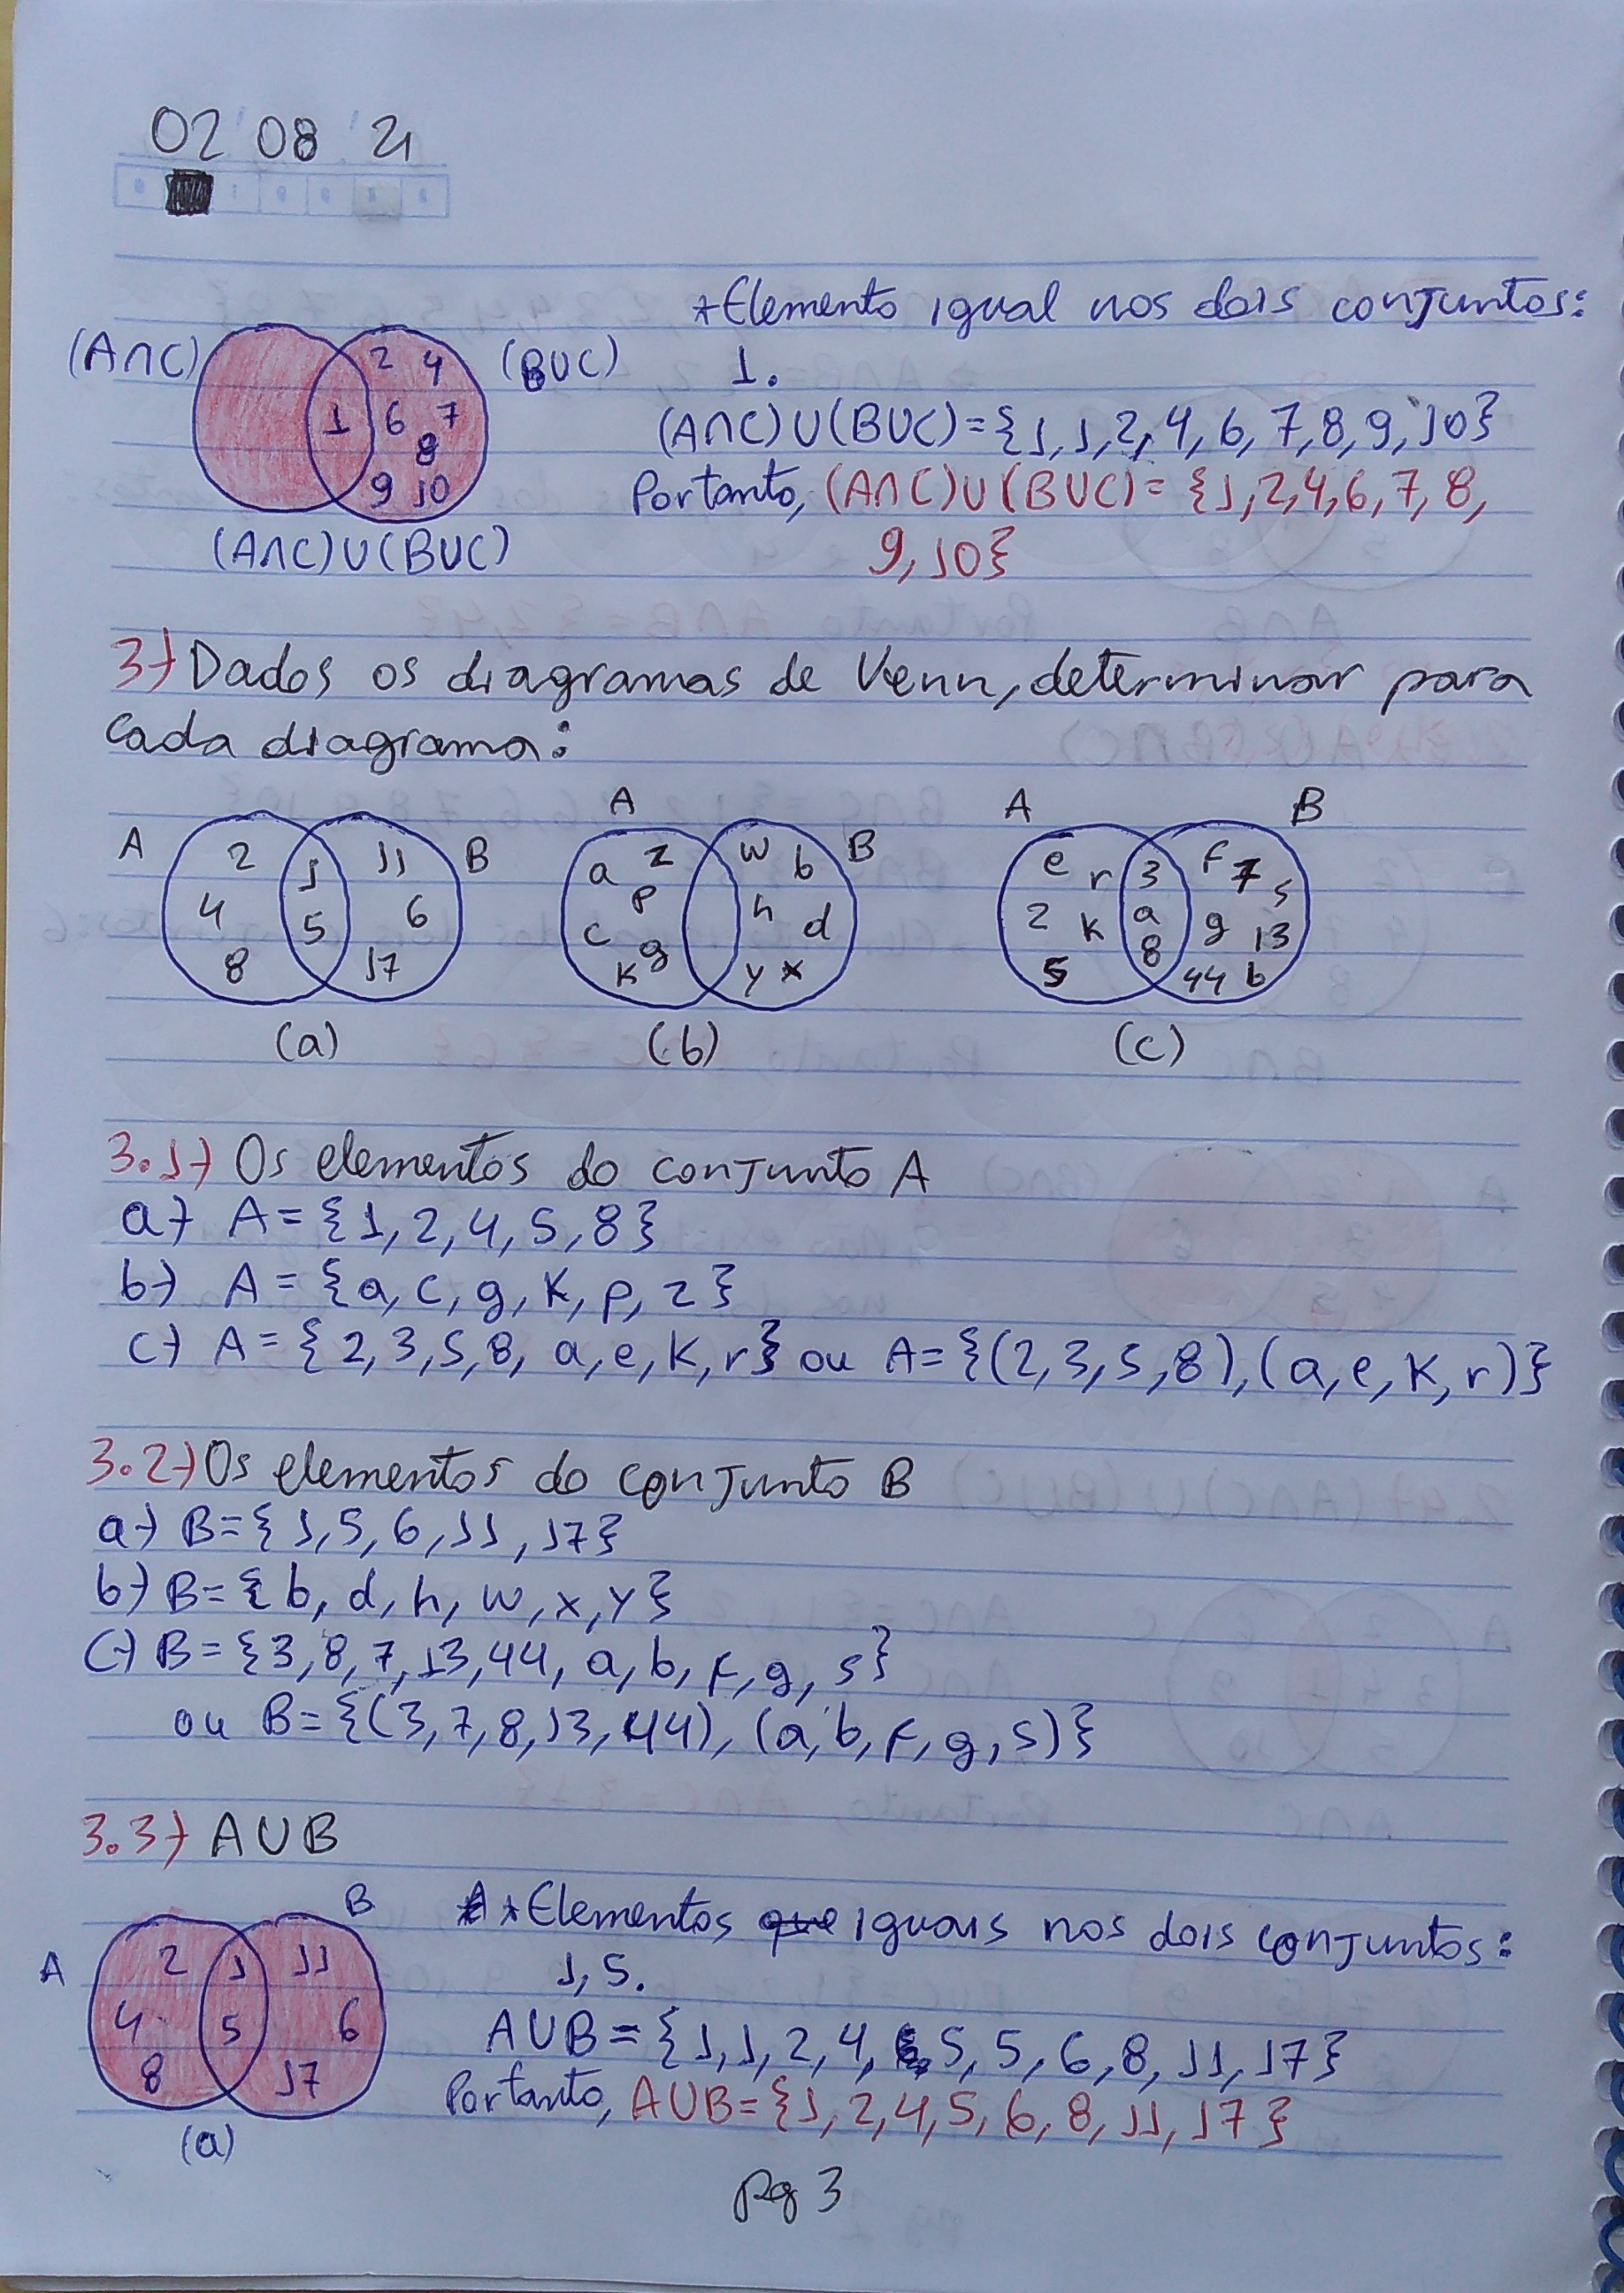 02 08 21
*Elemento igual nos dois conjuntos:
1.
(A∩C) (B∪C)
2 4
1 6 7
8
9 10
(A∩C)∪(B∪C)
(A∩C)∪(B∪C)={1,1,2,4,6,7,8,9,10}
Portanto, (A∩C)∪(B∪C)= {1,2,4,6,7,8,
9,10}
3-) Dados os diagramas de Venn, determinar para
cada diagrama:
A 2 1 11 B
4 5 6
8 17
(a)
A
a z w b B
p h
c g d
k y x
(b)
A B
e r 3 f 7 s
2 k a g 13
5 8 44 b
(c)
3.1-) Os elementos do conjunto A
a-) A={1,2,4,5,8}
b-) A={a,c,g,k,p,z}
c-) A={2,3,5,8,a,e,k,r} ou A={(2,3,5,8),(a,e,k,r)}
3.2-) Os elementos do conjunto B
a-) B={1,5,6,11,17}
b-) B={b,d,h,w,x,y}
c-) B={3,8,7,13,44,a,b,f,g,s}
ou B={(3,7,8,13,44),(a,b,f,g,s)}
3.3-) A∪B
B
A 2 1 11
4 5 6
8 17
(a)
* Elementos que iguais nos dois conjuntos:
1,5.
A∪B={1,1,2,4,5,5,6,8,11,17}
Portanto, A∪B={1,2,4,5,6,8,11,17}
pg 3